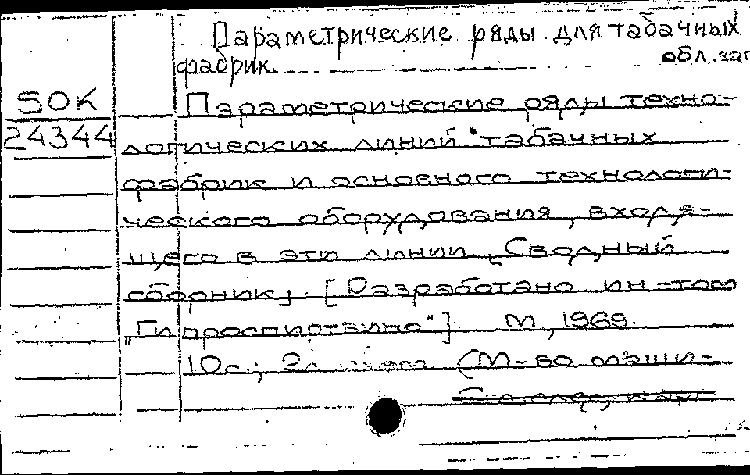 Параметрические ряды для табачных
фабрик обл. заг
50К
24344
Параметрические ряды техно-
логических линий табачных
фабрик и основного технологи-
ческого оборудования, входя-
щего в эти линии. Сводный
сборник. [Разработано ин-том
„Гипроспиртвино"] М., 1969.
10с.; (М-во маши-